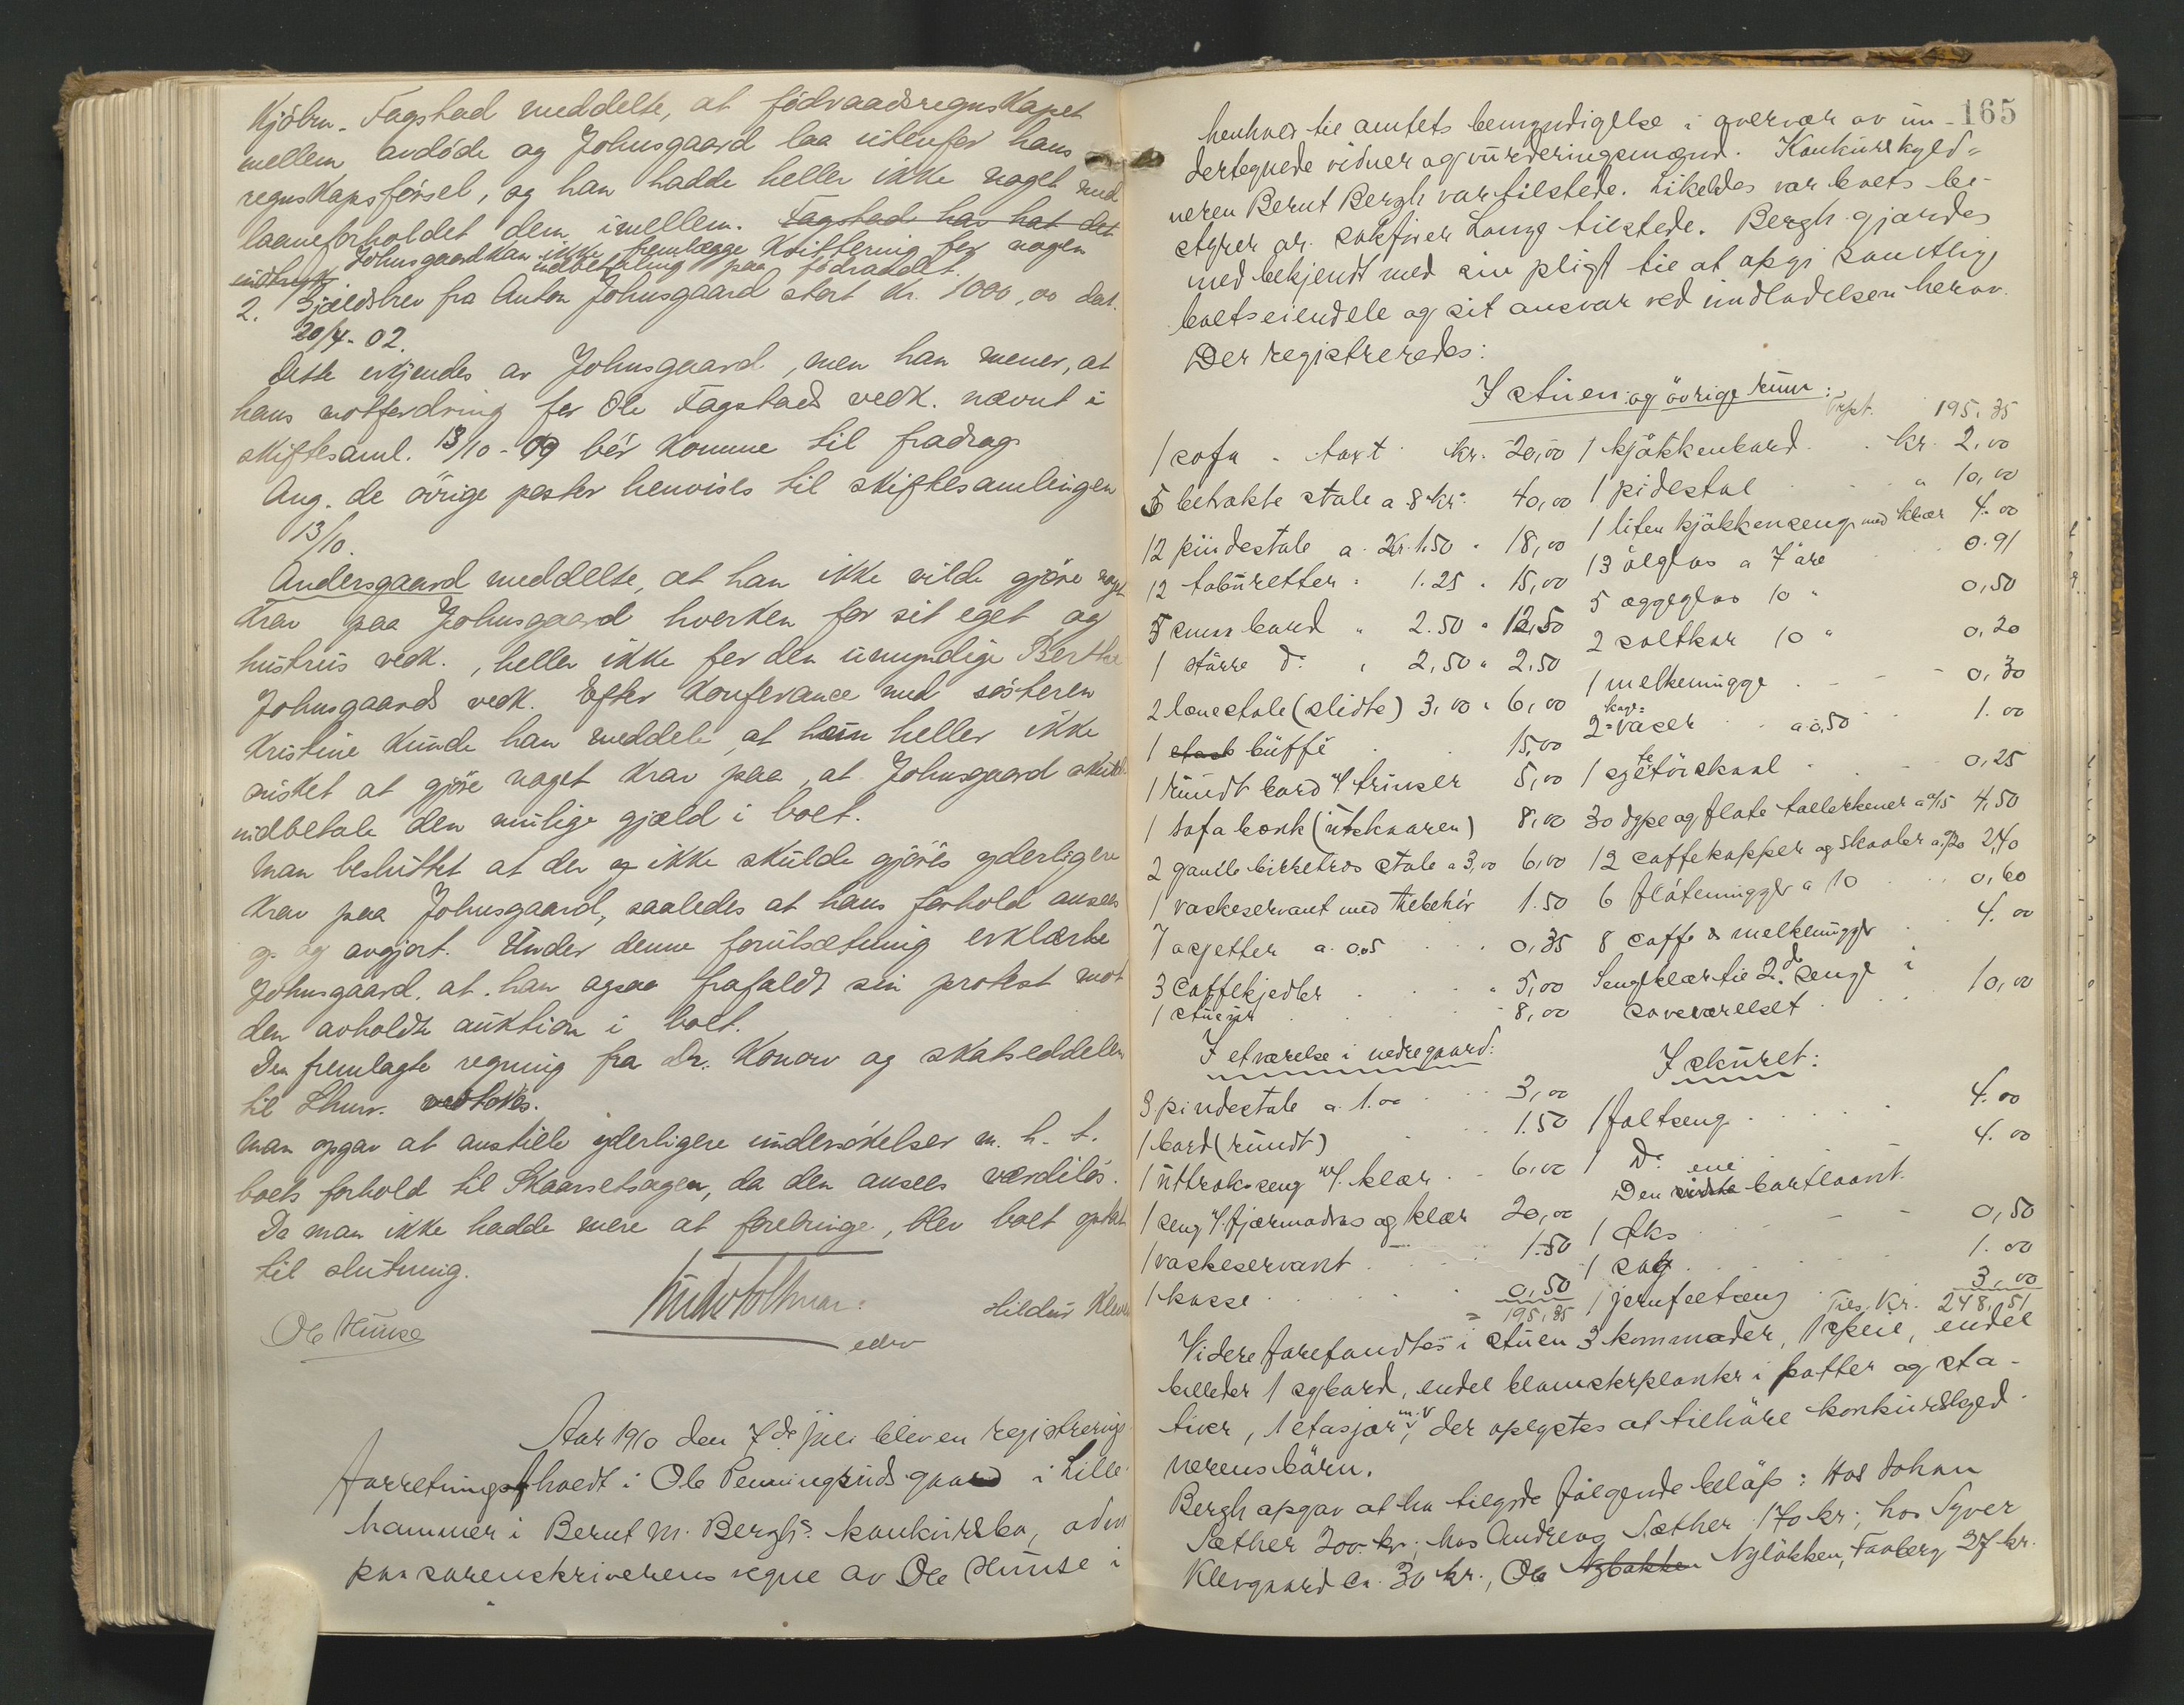 Kjöbm. Fagstad meddelte, at födraadsregnskapet
mellem avdöde og Johnsgaard laa utenfor hans
regnskapsförsel, og han hadde heller ikke noget med
laaneforholdet dem imellem. Fagstad har hat det
Johnsgaard kan ikke fremlægge kvittering for nogen
indbetaling paa födraadet.
2. Gjældsbrev fra Anton Johnsgaard stort kr. 1000,00 dat.
20/4-02.
Dette erkjendes av Johnsgaard, men han mener, at
hans motfordring for Ole Fagstads vedk. nævnt i
skiftesaml. 13/10-09 bör komme til fradrag
Ang. de övrige poster henvises til skiftesamlingen
13/10.
Andersgaard meddelte, at han ikke vilde gjöre noget
krav paa Johnsgaard hverken for sit eget og
hustrus vedk., heller ikke for den umyndige Berthe
Johnsgaards vedk. Efter konferance med sösteren
Kristine kunde han meddele, at hun heller ikke
önsket at gjöre noget krav paa, at Johnsgaard skulde
indbetale den mulige gjæld i boet.
Man besluttet at der ikke skulde gjöres yderligere
krav paa Johnsgaard, saaledes at hans forhold ansees
op og avgjort. Under denne forutsætning erklærte
Johnsgaard, at han ogsaa frafaldt sin protest mot
den avholdte auktion i boet.
Den fremlagte regning fra Dr. Konow og skatseddelen
til Lhmr. vedtokes.
Man opgav at anstille yderligere undersökelser m. h. t.
boets forhold til Skaarsetsagen, da den ansees værdilös.
Da man ikke hadde mere at forebringe, blev boet optat
til slutning.
Ole Hunse
edv
Aar 1910 den 7de juli blev en registrerings
forretning avholdt i Ole Penningsruds gaard i Lille
hammer i Bernt M. Berghs konkursbo, adm
paa sorenskriverens vegne av Ole Hunse i
165
henhold til amtets bemyndigelse i overvær av un-
dertegnede vidner og vurderingsmænd. Konkursskyld-
neren Bernt Bergh var tilstede. Likeledes var boets be-
styrer or. sakförer Lange tilstede. Bergh gjordes
med bekjendt med sin pligt til at opgi samtlige
boets eiendele og sit ansvar ved undladelsen herav.
Der registreredes:
I stuen og övrige rum:
1 sofa - takst kr. 20,00
5 betrukte stole a 8 kr. 40,00
12 pindestole a kr. 1.50 " 18,00
12 taburetter " 1.25 " 15,00
5 smaa bord " 2.50 " 12,50
1 större do. " 2,50 " 2.50
2 lænestole (slidte) 3,00 " 6,00
1 büffé 15,00
1 rundt bord 5,00
1 sofa bænk (utskaaren) 8,00
2 gamle birketræs stole a 3,00 6,00
1 vaskeservant med tilbehör 1.50
7 asjetter a 0.05 0,35
3 caffekjedler " 5,00
1 stueur 8,00
I et værelse i nedregaard:
3 pindestole a 1.00 3,00
1 bord (rundt) 1.50
1 uttrækseng m/. klær 6,00
1 seng m/. fjærmadras og klær 20,00
1 vaskeservant 1.50
1 kasse 0,50
= 195,35
Trspt. 195,35
1 kjökkenbord kr. 2,00
1 pidestal " 10,00
1 liten kjökkenseng med klær 4.00
13 ölglas a 7 öre 0.91
5 æggeglas 10 " 0,50
2 saltkar 10 " 0,20
1 melkemugge 0,30
2 kage-vaser a 0,50 1.00
1 syltetöiskaal 0,25
30 dype og flate tallerkener a 0,15 4,50
12 caffekopper og skaaler a 0,20 2,40
6 flötemugger a 10 0,60
8 caffe & melkemugger 4.00
Sengklær til 2de senge i
soveværelset 10,00
I skuret:
1 faltseng 4.00
1 Do. 4.00
Den ene bortlaant.
1 öks 0,50
1 sag 1.00
1 jernfeltseng 3,00
Tils. kr. 248,51
Videre forefandtes i stuen 3 kommoder, 1 speil, endel
billeder 1 sybord, endel blomsterplanter i potter og sta-
tiver, 1 etasjær m. v., der oplystes at tilhöre konkursskyld-
nerens börn.
Bergh opgav at ha tilgode fölgende belöp: Hos Johan
Sæther 200 kr., hos Andreas Sæther 170 kr., hos Syver
Klevgaard ca. 30 kr., Ole Nybakken Nylökken, Faaberg 27 kr.